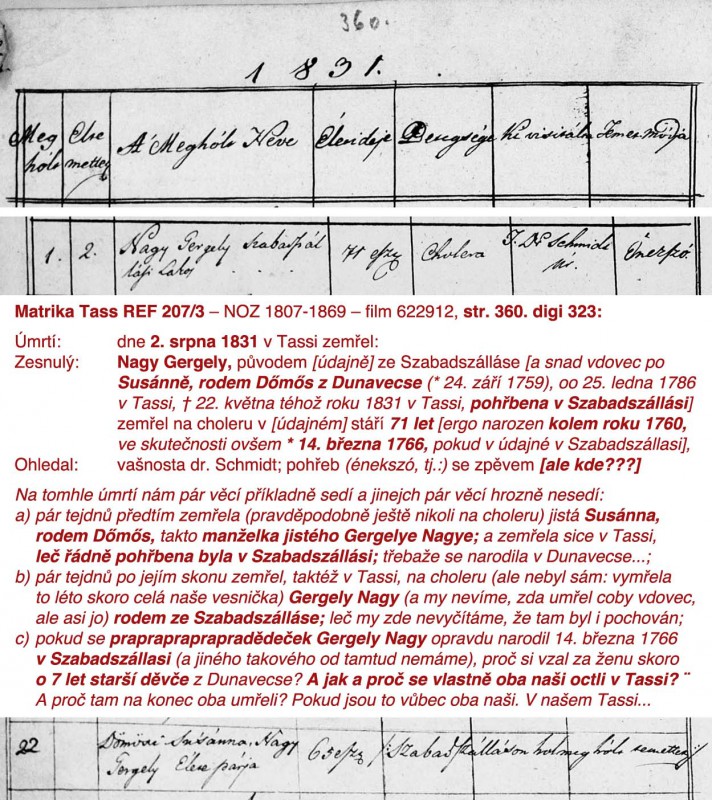 360.
1831.
Meg hólt
Elte mettet
A' Meghólt Neve
Életideje
Betegsége
Ki visitálta
Temet módja
1. 2. Nagy Gergely Szabadszál 71 esz Cholera Dr Schmidt Énekszó
lási Lakos
Matrika Tass REF 207/3 – NOZ 1807-1869 – film 622912, str. 360. digi 323:
Úmrtí: dne 2. srpna 1831 v Tassi zemřel:
Zesnulý: Nagy Gergely, původem [údajně] ze Szabadszálláse [a snad vdovec po
Susánně, rodem Dőmős z Dunavecse (* 24. září 1759), oo 25. ledna 1786
v Tassi, † 22. května téhož roku 1831 v Tassi, pohřbena v Szabadszállási]
zemřel na choleru v [údajném] stáří 71 let [ergo narozen kolem roku 1760,
ve skutečnosti ovšem * 14. března 1766, pokud v údajné v Szabadszállasi],
Ohledal: vašnosta dr. Schmidt; pohřeb (énekszó, tj.:) se zpěvem [ale kde???]
Na tomhle úmrtí nám pár věcí příkladně sedí a jinejch pár věcí hrozně nesedí:
a) pár tejdnů předtím zemřela (pravděpodobně ještě nikoli na choleru) jistá Susánna,
rodem Dőmős, takto manželka jistého Gergelye Nagye; a zemřela sice v Tassi,
leč řádně pohřbena byla v Szabadszállási; třebaže se narodila v Dunavecse...;
b) pár tejdnů po jejím skonu zemřel, taktéž v Tassi, na choleru (ale nebyl sám: vymřela
to léto skoro celá naše vesnička) Gergely Nagy (a my nevíme, zda umřel coby vdovec,
ale asi jo) rodem ze Szabadszálláse; leč my zde nevyčítáme, že tam byl i pochován;
c) pokud se prapraprapraprapradědeček Gergely Nagy opravdu narodil 14. března 1766
v Szabadszállasi (a jiného takového od tamtud nemáme), proč si vzal za ženu skoro
o 7 let starší děvče z Dunavecse? A jak a proč se vlastně oba naši octli v Tassi? ¨
A proč tam na konec oba umřeli? Pokud jsou to vůbec oba naši. V našem Tassi...
22 Susánna, Nagy 65 esz Szabadszálláson hol meghólt temettetett
Gergely Élete párja